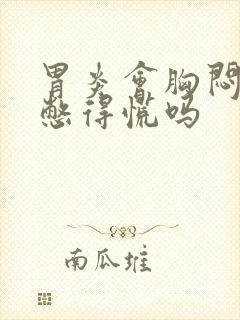 胃炎會胸悶
憋得慌吗
南瓜堆